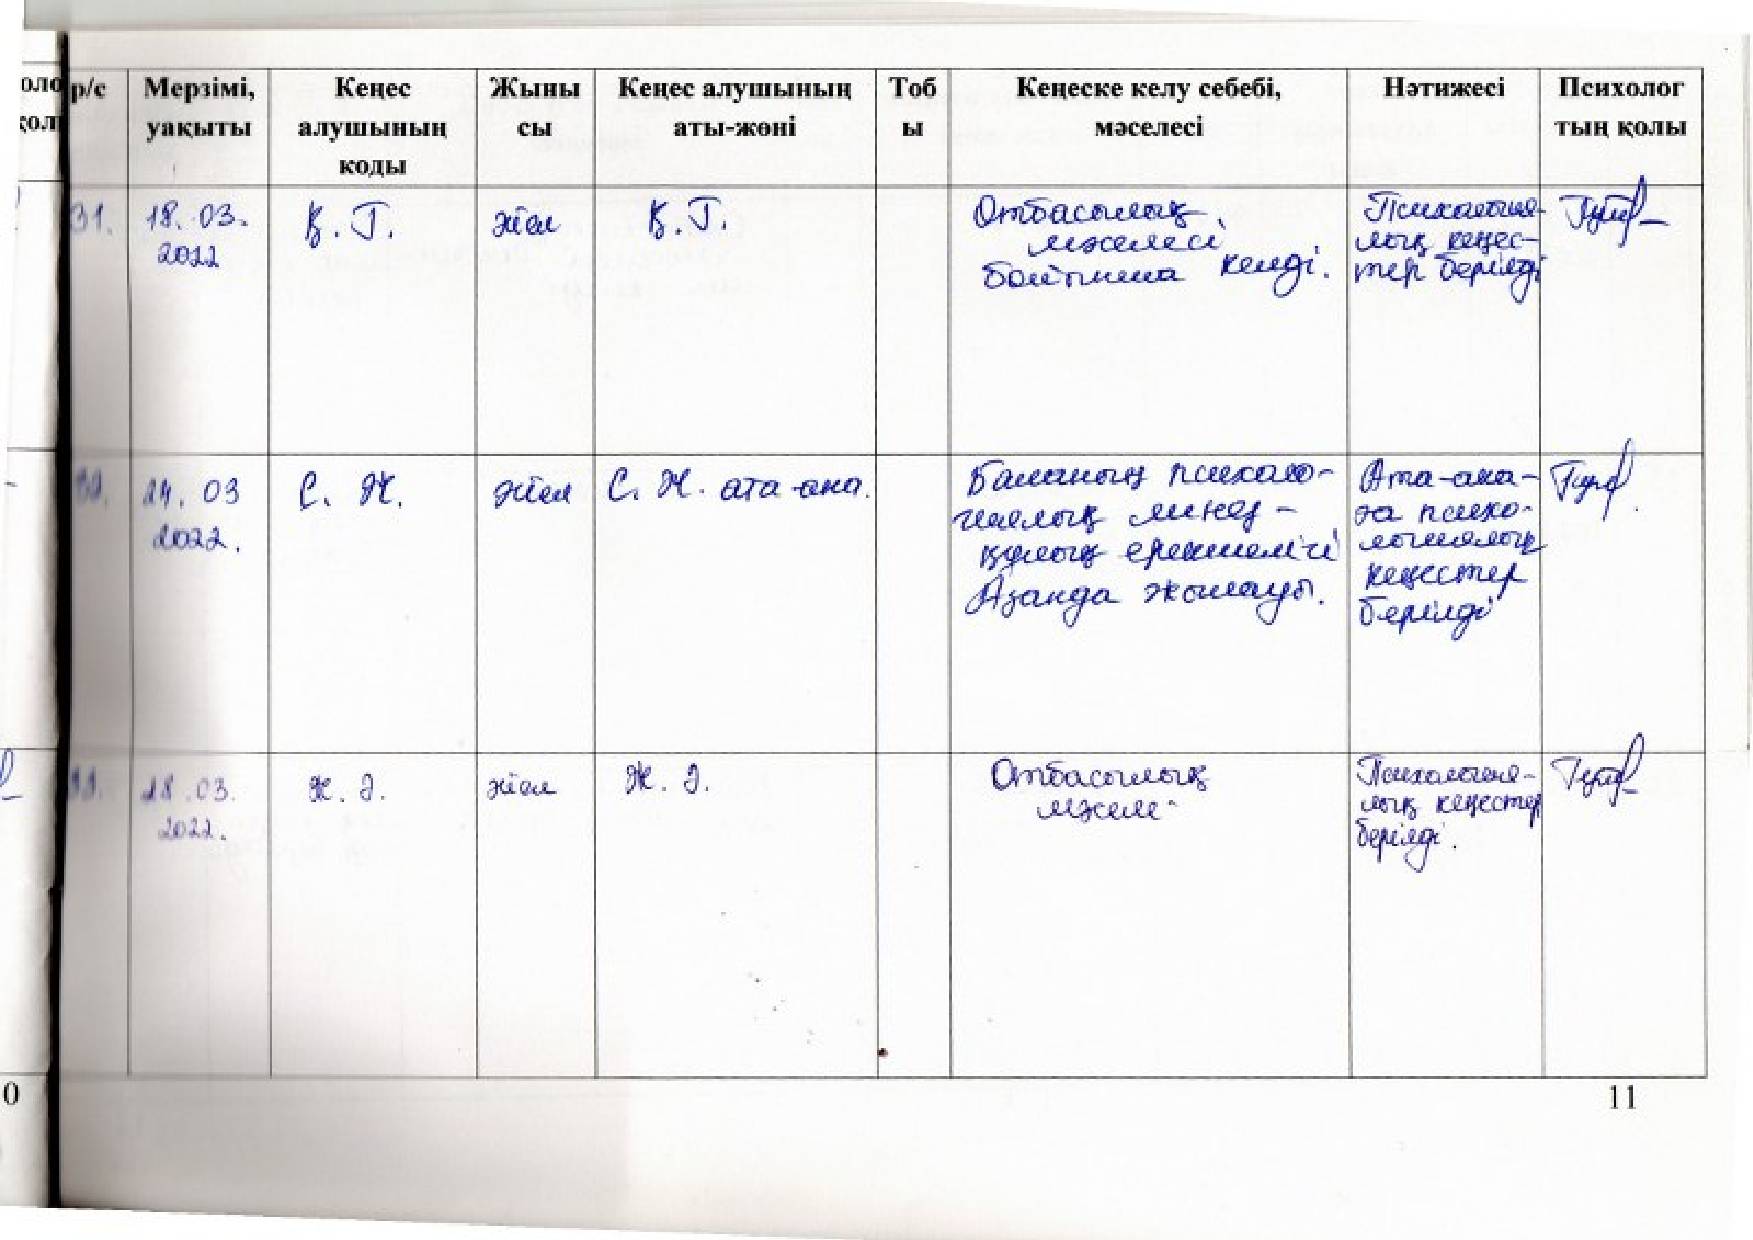 р/с
Мерзімі,
уақыты
Кеңес
алушының
коды
Жыны
сы
Кеңес алушының
аты-жөні
Тоб
ы
Кеңеске келу себебі,
мәселесі
Нәтижесі
Психолог
тың қолы
31.
18. 03.
2022
Қ. Г.
әйел
Қ. Г.
Отбасылық
мәселесі
бойынша келді.
Психология-
лық кеңес-
тер берілді
24. 03
2022.
С. Ж.
әйел
С. Ж. ата-ана.
Баланың психоло-
гиялық мінез-
құлық ерекшелігі
Азанда жылауы.
Ата-ана-
ға психо-
логиялық
кеңестер
берілді
28.03.
2022.
Ж. Ә.
әйел
Ж. Ә.
Отбасылық
мәселе
Психология-
лық кеңестер
берілді.
0
11